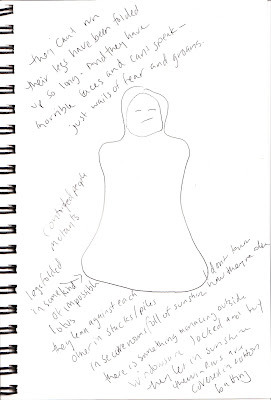 they can't run
their legs have been folded
up so long. And they have
horrible faces and can't speak -
just wails of fear and groans.
contorted people
mutants
legs folded
in some kind
of impossible
lotus
they lean against each
other in stacks/piles
in secure room/full of sunshine
there is something menacing outside
windows are locked and big
they let in sunshine
themselves are
covered in cotton
batting
I don't know
how they move